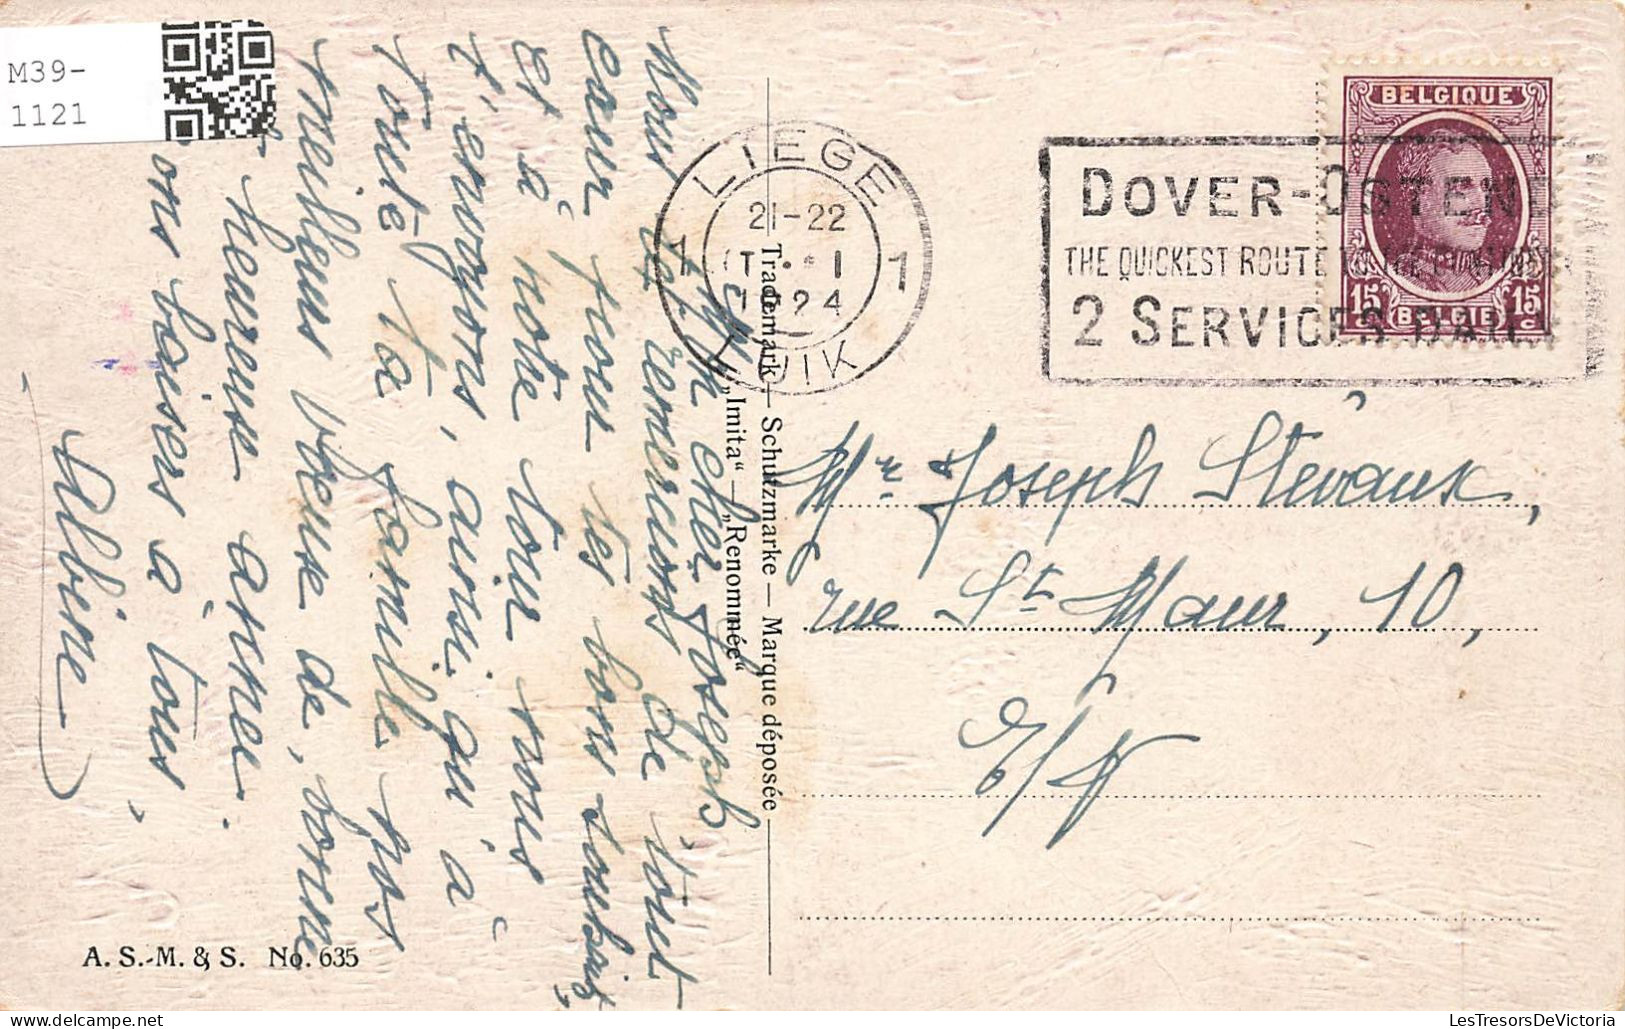 M39-
1121
LIEGE
21-22
1
1
1
1 24
LUIK
DOVER-OSTEND
THE QUICKEST ROUTE TO THE CONTINENT
2 SERVICES DAILY
BELGIQUE
15 15
BELGIE
Mr Joseph Stévaux,
rue St Maur, 10,
E/V
Trademark — Schutzmarke — Marque déposée
„Imita“ — „Renommée“
Mon cher Joseph
Nous te remercions de tout
cœur pour tes bons souhaits
et à notre tour nous
t'envoyons, ainsi qu'à
toute ta famille nos
meilleurs vœux de bonne
et heureuse année.
Bons baisers à tous,
Albine
A. S.-M. & S. No. 635
LesTresorsDeVictoria